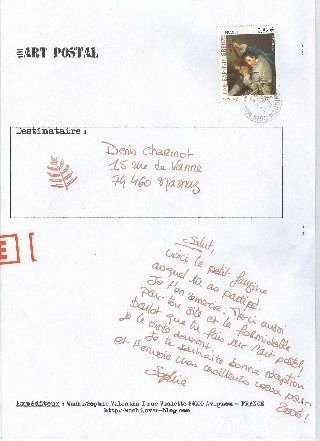 ART POSTAL
FRANCE
Destinataire :
Denis Charmot
15 rue de Vanne
74 460 Marnaz
Salut,
voici le petit fanzine
auquel tu as participé.
Je t'en remercie. Merci aussi
pour ton site et le formidable
boulot que tu fais sur l'art postal,
je le visite souvent.
Je te souhaite bonne réception
et t'envoie mes meilleurs voeux pour
2006!
Sophie
Expéditeur : Washi/Sophie Valentin 1 rue Violette 84000 Avignon - FRANCE
http://washi.over-blog.com